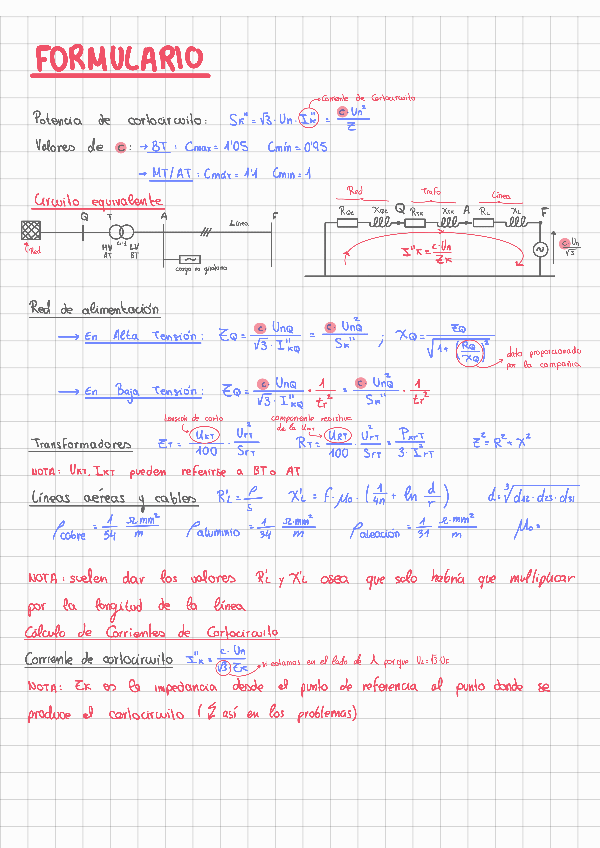 FORMULARIO
Corriente de Cortocircuito
Potencia de cortocircuito: Sk" = √3 · Un · Ik" = c · Un² / Z
Valores de c: → BT: Cmax = 1'05 Cmin = 0'95
→ MT/AT: Cmax = 1'1 Cmin = 1
Circuito equivalente
Red Trafo Línea
Q T A Línea F
RQt XQt Q RTK XTK A RL XL F
Red HV AT LV BT
I"K = c · Un / ZK
c Un / √3
carga no giratoria
Red de alimentación
→ En Alta Tensión: ZQ = c UnQ / √3 · I"KQ = c UnQ² / Sk" ; XQ = ZQ / √1 + (RQ / XQ)²
dato proporcionado
por la compañia
→ En Baja Tensión: ZQ = c UnQ / √3 · I"KQ · 1 / tr² = c UnQ² / Sk" · 1 / tr²
tensión de corto componente resistiva
de la
Transformadores ZT = UKT / 100 · UrT² / SrT RT = URT / 100 · UrT² / SrT = PKrT / 3 · I²rT Z² = R² + X²
NOTA: UKT, IKT pueden referirse a BT o AT
Líneas aéreas y cables R'L = ρ / s X'L = f · μ0 · (1 / 4n + ln d / r) d = ³√d12 · d23 · d31
ρcobre = 1 / 54 Ω·mm² / m ρaluminio = 1 / 34 Ω·mm² / m ρaleación = 1 / 31 Ω·mm² / m μ0 =
NOTA: suelen dar los valores R'L y X'L osea que solo habría que multiplicar
por la longitud de la línea
Cálculo de Corrientes de Cortocircuito
Corriente de cortocircuito I"K = c · Un / √3 ZK si estamos en el lado de λ porque UL = √3 · UF
NOTA: ZK es la impedancia desde el punto de referencia al punto donde se
produce el cortocircuito ( así en los problemas)